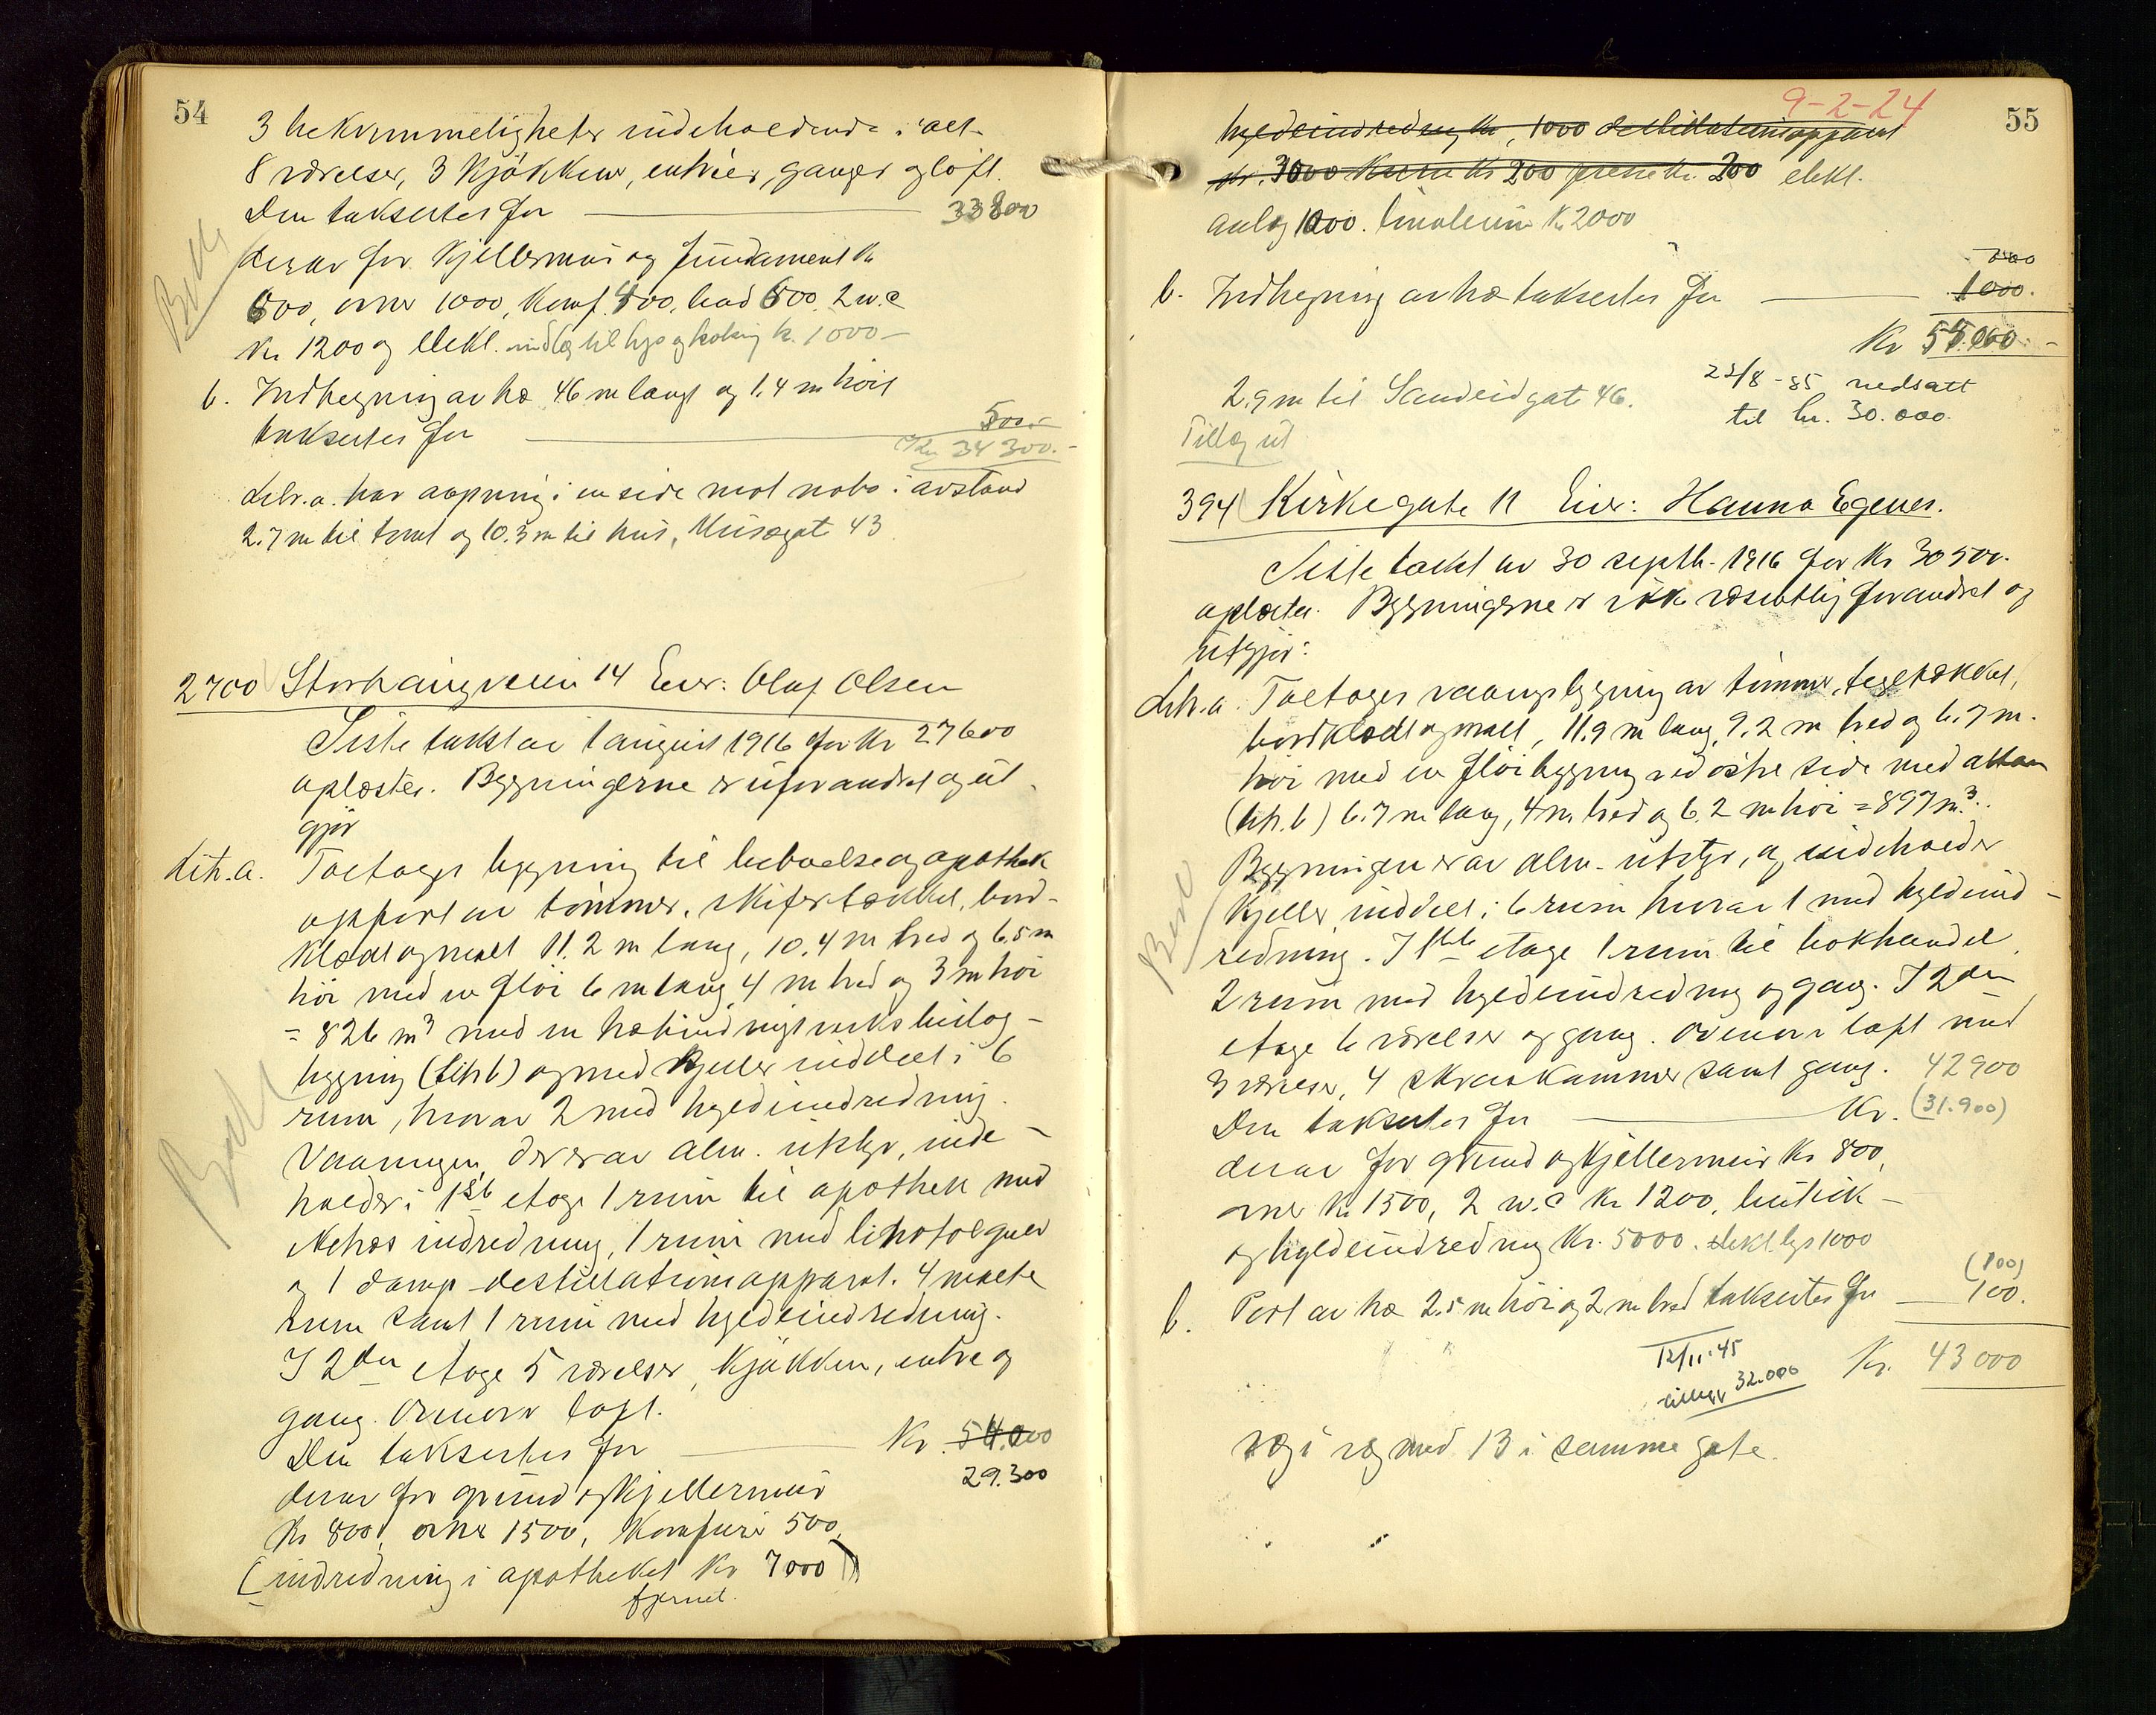 54
3 bekvemmeligheter indeholdende i alt
8 værelser, 3 kjøkkener, entréer, ganger og loft.
Den takseres for 33800
derav for kjellermur og fundament kr
600, ovner 1000, komf. 400, bad 600, 2 w.c
kr 1200 og elekt. indlæg til lys og kokning kr. 1000-
b. Indhegning av træ 46 m langt og 1.4 m høit
takseres for 500.-
Kr. 34 300.-
Litr. a. har aapning i en side mot nabo i avstand
2.7 m til tomt og 10.3 m til hus, Musægate 43
2700 Storhaugveien 14 Eier: Olaf Olsen
Siste takst av 1 august 1916 for kr 27600
oplæstes. Bygningerne er uforandret og ut-
gjør
Litr. a. Toetages bygning til beboelse og apothek
opført av tømmer, skifertækket, bord-
klædt og malt 11.2 m lang, 10.4 m bred og 6.5 m
høi med en fløi 6 m lang 4 m bred og 3 m høi
= 826 m³ med en
bygning (litr b) og med kjeller inddelt i 6
rum, hvorav 2 med hyldeindredning.
Vaaningen, der er av alm. utstyr, inde-
holder i 1ste etage 1 rum til apothek med
indredning, 1 rum med gulv
og 1 damp-destillationsapparat. 4 malte
rum samt 1 rum med hyldeindredning.
I 2den etage 5 værelser, kjøkken, entre og
gang. Ovenover loft.
Den takseres for Kr. 54.000
29.300
derav for grund og kjellermur
kr 800, ovner 1500, komfurer 500,
(indredning i apotheket kr 7000)
fjernet.
9-2-24
55
hyldeindredning kr. 1000 destillationsapparat
kr. 3000 kr 200 kr. 200 elekt.
anlæg 1000. linoleum kr 2000
b. Indhegning av træ takseres for 1000.
Kr 55.000.-
23/8-35 nedsatt
til kr. 30.000.
2.9 m til Sandeidgate 46.
Tillæg ut
394 Kirkegate 11 Eier: Hanna Egenes.
Siste takst av 30 septb. 1916 for kr 30500.
oplæstes. Bygningerne er ikke væsentlig forandret og
utgjør:
Litr. a. Toetages vaaningsbygning av tømmer, tegltækket,
bordklædt og malt, 11.9 m lang, 9.2 m bred og 6.7 m.
høi med en fløibygning ved østre side med altan
(litr. b) 6.7 m lang, 4 m bred og 6.2 m høi = 897 m³.
Bygningen er av alm. utstyr, og indeholder
kjeller inddelt i 6 rum hvorav 1 med hyldeind-
redning. I 1ste etage 1 rum til bokhandel
2 rum med hyldeindredning og gang. I 2den
etage 6 værelser og gang. Ovenover loft med
3 værelser, 4 skraakammer samt gang. 42900
Den takseres for Kr. (31.900)
derav for grund og kjellermur kr 800,
ovner kr. 1500, 2 w.c kr 1200, butik-
og hyldeindredning kr. 5000. elekt lys 1000
(100)
b. Port av træ 2.5 m høi og 2 m bred takseres for 100.
12/11.45
32.000
Kr. 43 000
væg i væg med 13 i samme gate.